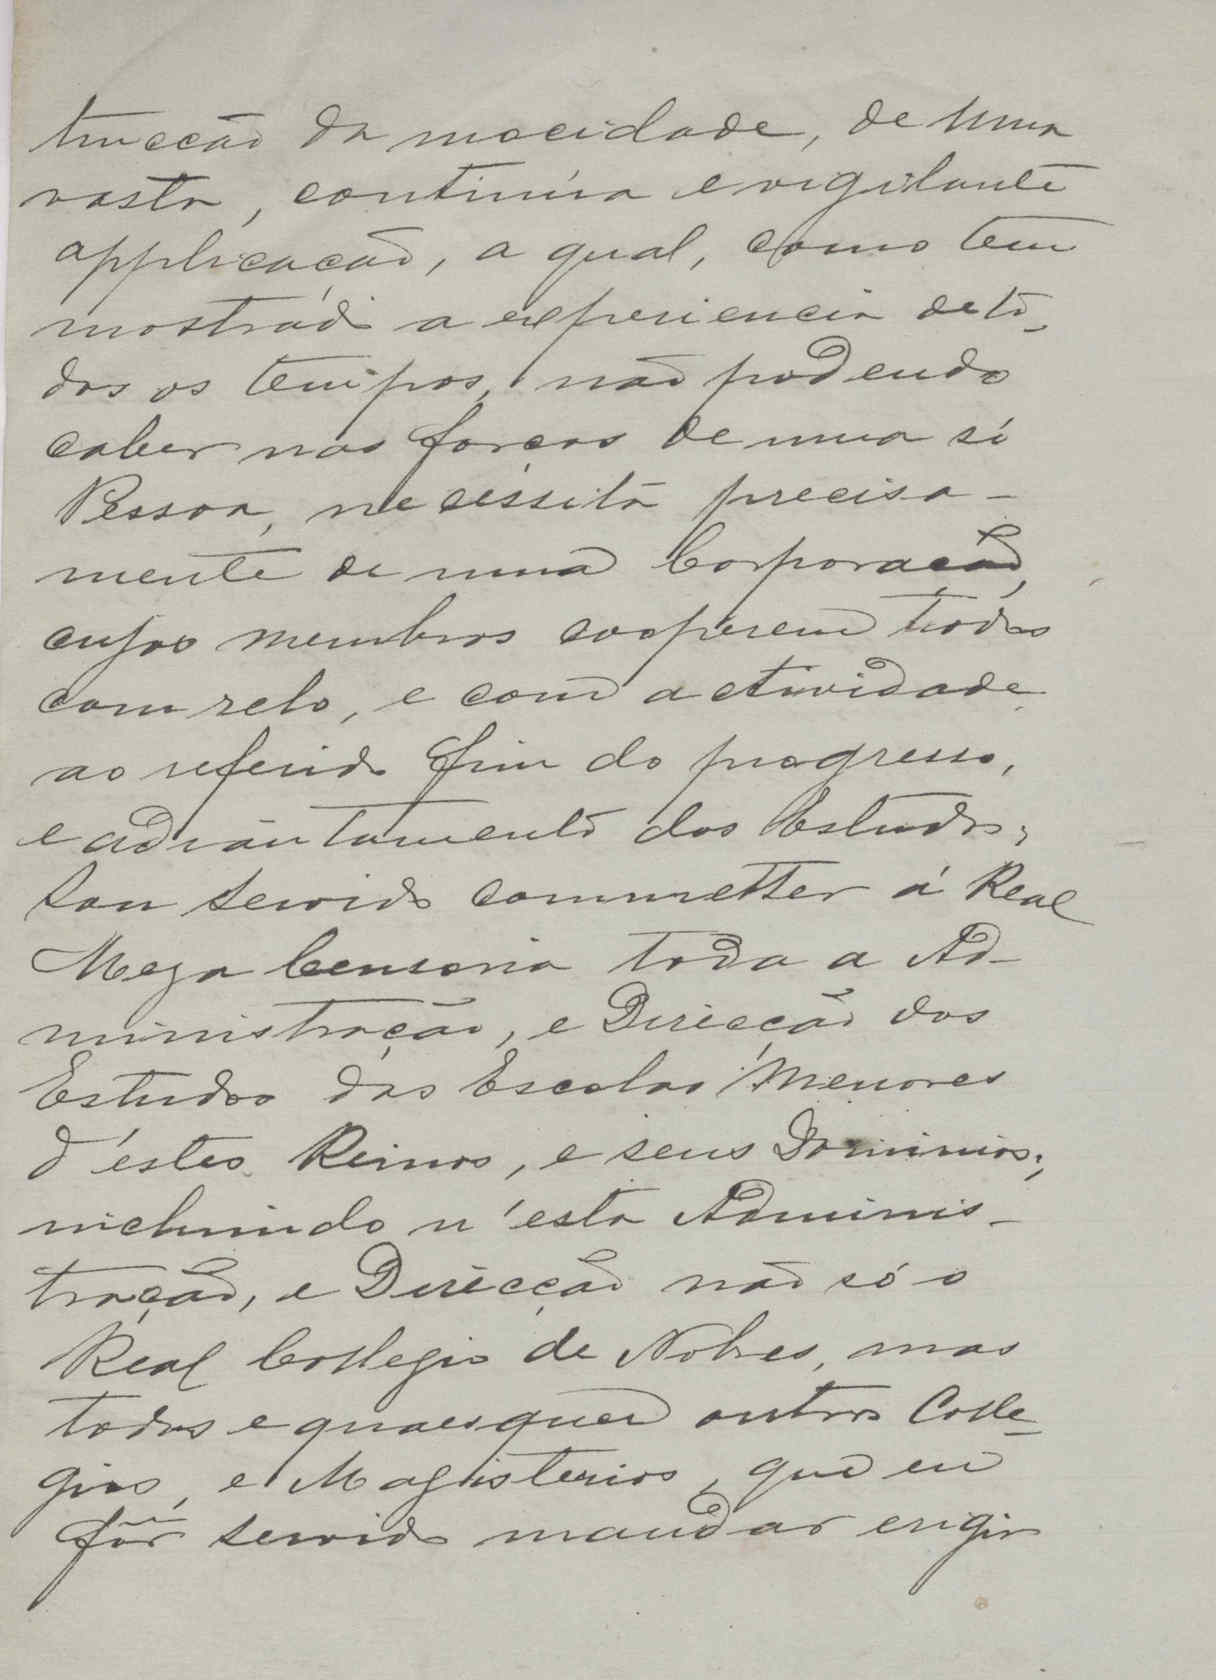 trucção da mocidade, de uma
vasta, continúa e vigilante
applicação, a qual, como tem
mostrádo a experiencia de to-
dos os tempos, não podendo
caber nas forças de uma só
Pessoa, necessita precisa-
mente de uma Corporação,
cujos membros cooperem todos
com zelo, e com actividade
ao referido fim do progresso,
e adiantamento dos Estudos;
Sou servido commetter á Real
Meza Censoria toda a Ad-
ministração, e Direcção dos
Estudos das Escolas Menores
d'éstes Reinos, e seus Dominios;
incluindo n'esta Adminis-
tração, e Direcção não só o
Real Collegio de Nobres, mas
todos e quaesquer outros Colle-
gios, e Magisterios, que eu
fôr servido mandar erigir